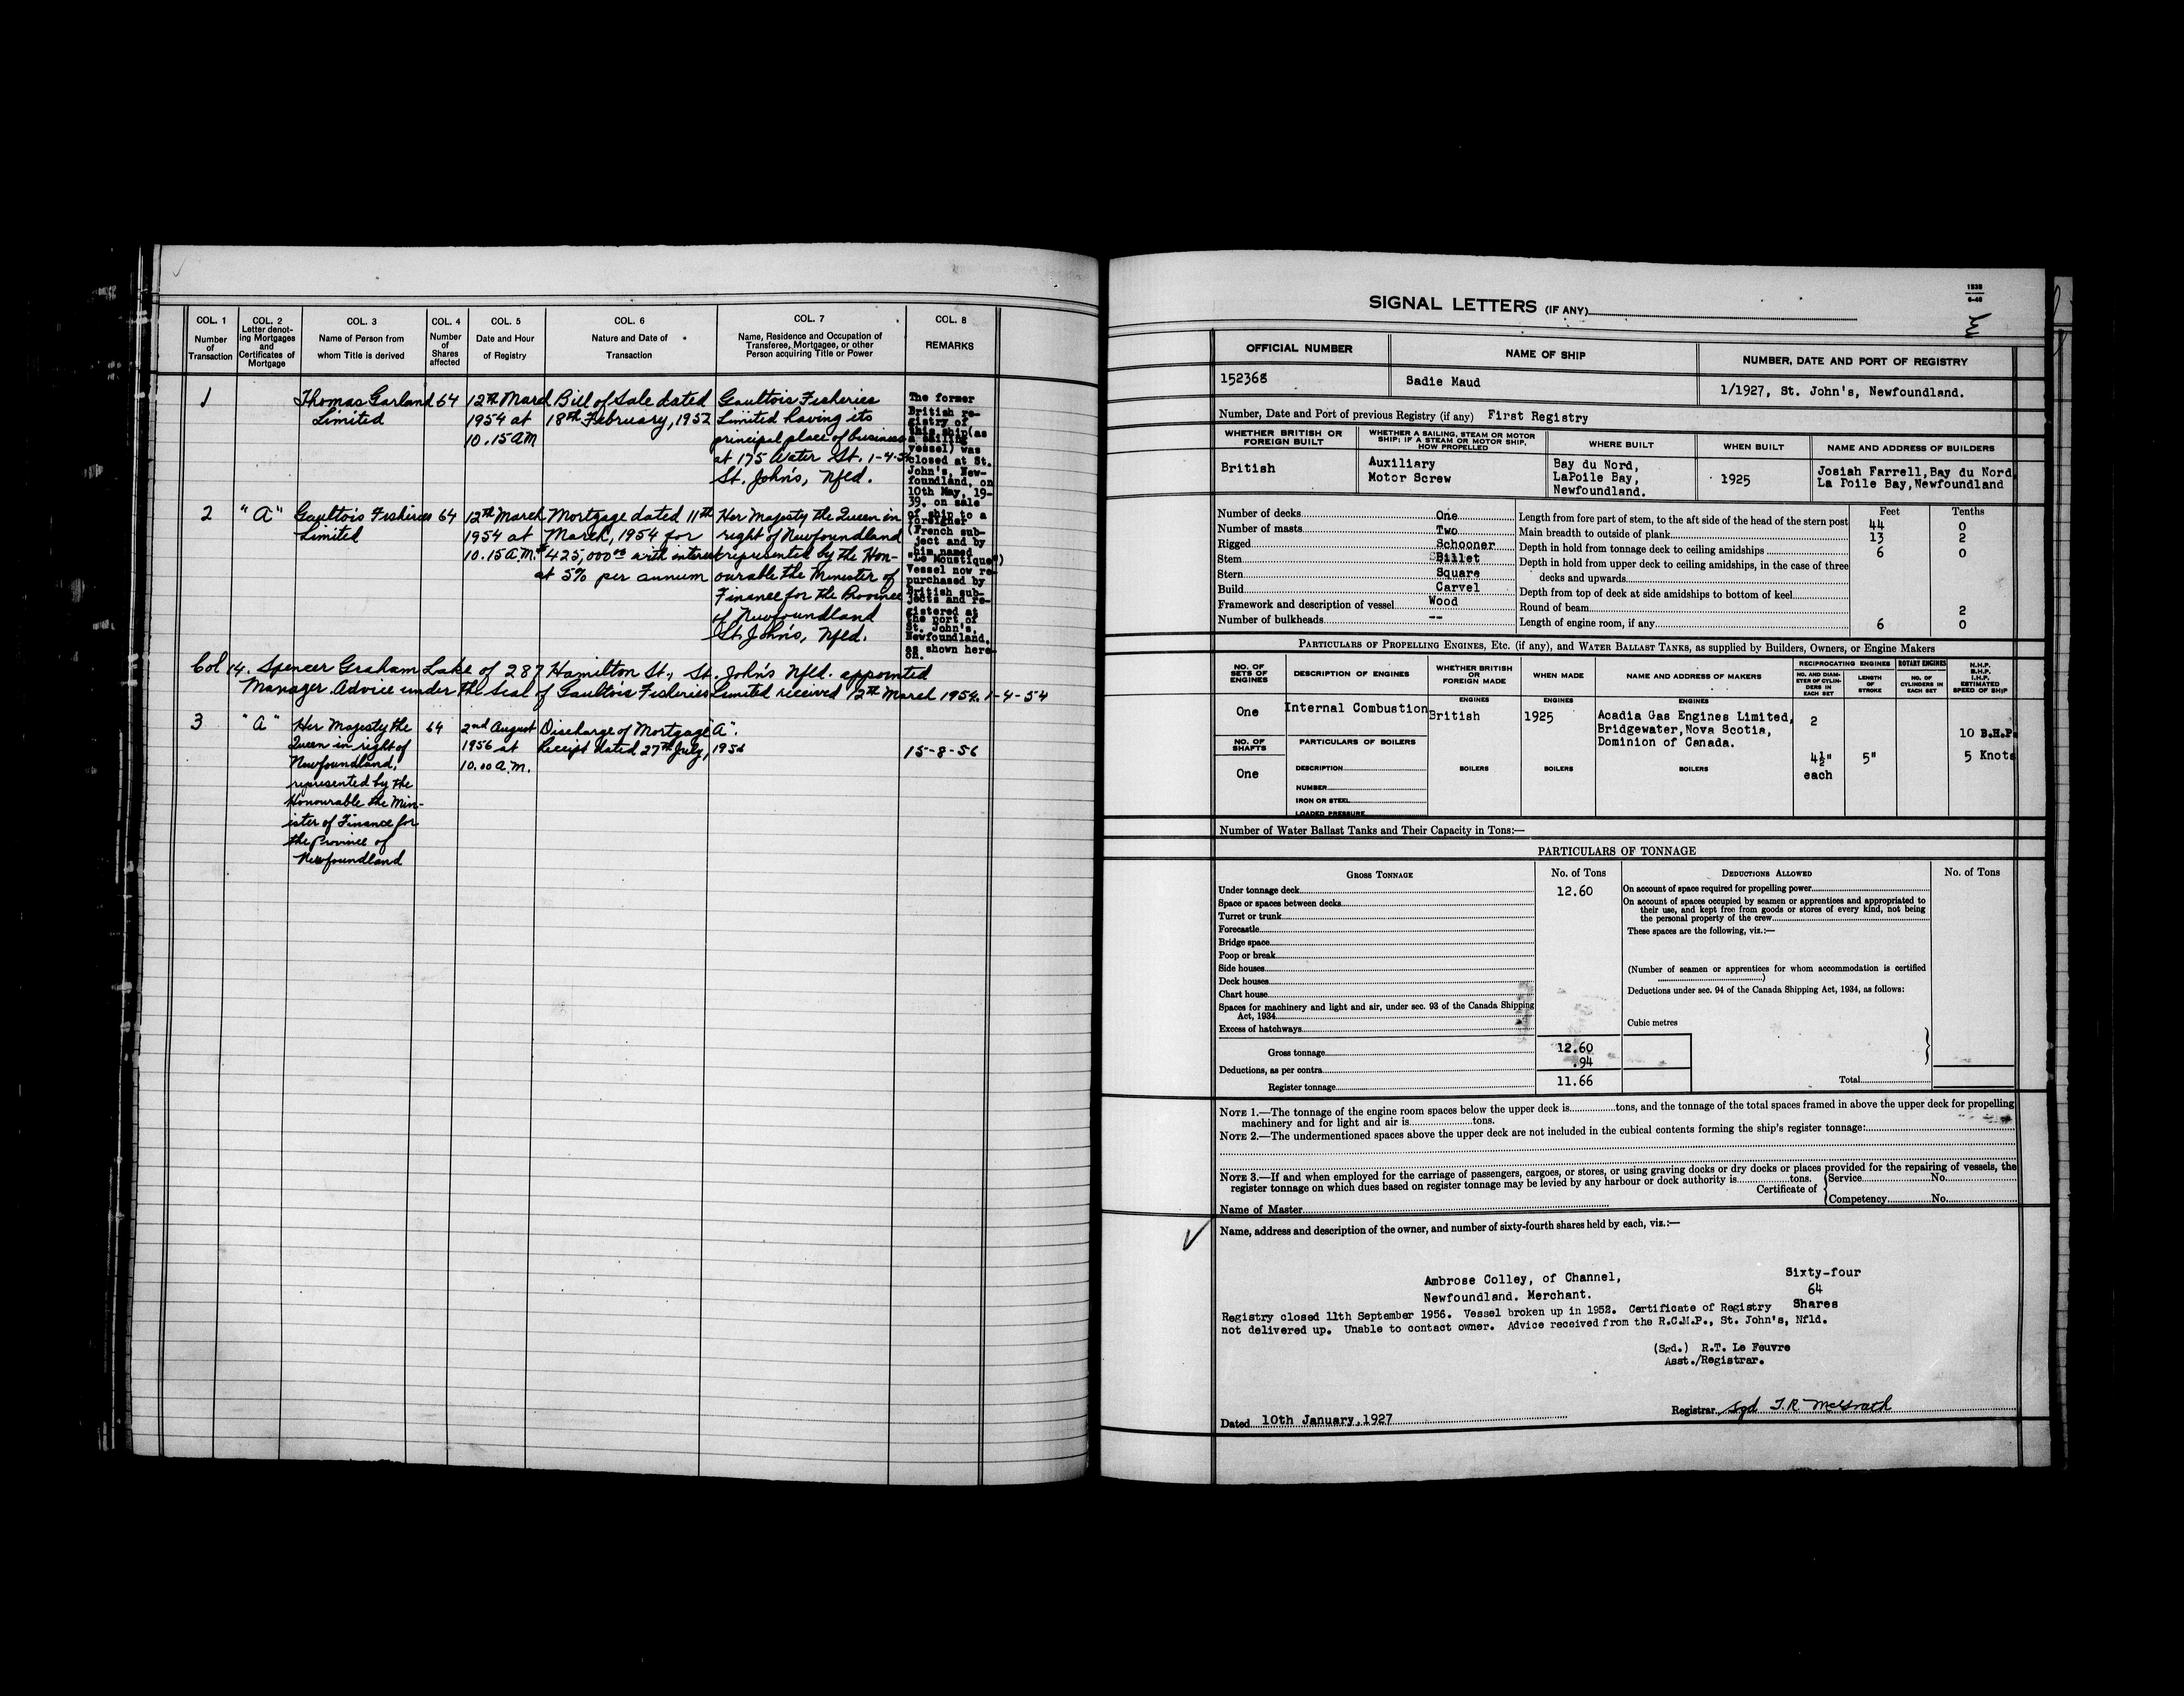 COL. 1
Number
of
Transaction
COL. 2
Letter denot-
ing Mortgages
and
Certificates of
Mortgage
COL. 3
Name of Person from
whom Title is derived
COL. 4
Number
of
Shares
affected
COL. 5
Date and Hour
of Registry
COL. 6
Nature and Date of
Transaction
COL. 7
Name, Residence and Occupation of
Transferee, Mortgagee, or other
Person acquiring Title or Power
COL. 8
REMARKS
1
Thomas Garland
Limited
64
12th March
1954 at
10.15 AM
Bill of Sale dated
18th February, 1952
Gaultois Fisheries
Limited having its
principal place of business
at 175 Water St. 1-4-54
St. John's, Nfld.
The former
British re-
gistry of
this ship(as
a sailing
vessel) was
closed at St.
John's, New-
foundland, on
10th May, 19-
39, on sale
of ship to a
foreigner
(French sub-
ject and by
him named
"Le Moustique")
Vessel now re-
purchased by
British sub-
jects and re-
gistered at
the port of
St. John's,
Newfoundland.
as shown here-
on.
2
"A"
Gaultois Fisheries
Limited
64
12th March
1954 at
10.15 A.M.
Mortgage dated 11th
March, 1954 for
$425,000.00 with interest
at 5% per annum
Her Majesty the Queen in
right of Newfoundland
represented by the Hon-
ourable the Minister of
Finance for the Province
of Newfoundland
St. John's, Nfld.
Col 14. Spencer Graham Lake of 287 Hamilton St., St. John's Nfld. appointed
Manager. Advice under the Seal of Gaultois Fisheries Limited received 12th March 1954. 1-4-54
3
"A"
Her Majesty the
Queen in right of
Newfoundland,
represented by the
Honourable the Min-
ister of Finance for
the Province of
Newfoundland
64
2nd August
1956 at
10.00 A.M.
Discharge of Mortgage "A".
Receipt dated 27th July, 1956
15-8-56
SIGNAL LETTERS (IF ANY)
OFFICIAL NUMBER
152368
NAME OF SHIP
Sadie Maud
NUMBER, DATE AND PORT OF REGISTRY
1/1927, St. John's, Newfoundland.
Number, Date and Port of previous Registry (if any) First Registry
WHETHER BRITISH OR
FOREIGN BUILT
British
WHETHER A SAILING, STEAM OR MOTOR
SHIP; IF A STEAM OR MOTOR SHIP,
HOW PROPELLED
Auxiliary
Motor Screw
WHERE BUILT
Bay du Nord,
LaPoile Bay,
Newfoundland.
WHEN BUILT
1925
NAME AND ADDRESS OF BUILDERS
Josiah Farrell,Bay du Nord,
La Poile Bay,Newfoundland
Number of decks One
Number of masts Two
Rigged Schooner
Stem Billet
Stern Square
Build Carvel
Framework and description of vessel Wood
Number of bulkheads --
Feet Tenths
Length from fore part of stem, to the aft side of the head of the stern post 44 0
Main breadth to outside of plank 13 2
Depth in hold from tonnage deck to ceiling amidships 6 0
Depth in hold from upper deck to ceiling amidships, in the case of three
decks and upwards
Depth from top of deck at side amidships to bottom of keel
Round of beam 2
Length of engine room, if any 6 0
PARTICULARS OF PROPELLING ENGINES, ETC. (if any), and WATER BALLAST TANKS, as supplied by Builders, Owners, or Engine Makers
NO. OF
SETS OF
ENGINES
One
NO. OF
SHAFTS
One
DESCRIPTION OF ENGINES
Internal Combustion
PARTICULARS OF BOILERS
DESCRIPTION
NUMBER
IRON OR STEEL
LOADED PRESSURE
WHETHER BRITISH
OR
FOREIGN MADE
ENGINES
British
BOILERS
WHEN MADE
ENGINES
1925
BOILERS
NAME AND ADDRESS OF MAKERS
ENGINES
Acadia Gas Engines Limited,
Bridgewater,Nova Scotia,
Dominion of Canada.
BOILERS
RECIPROCATING ENGINES
NO. AND DIAM-
ETER OF CYLIN-
DERS IN
EACH SET
2
4½"
each
LENGTH
OF
STROKE
5"
ROTARY ENGINES
NO. OF
CYLINDERS IN
EACH SET
N.H.P.
B.H.P.
I.H.P.
ESTIMATED
SPEED OF SHIP
10 B.H.P.
5 Knots
Number of Water Ballast Tanks and Their Capacity in Tons:—
PARTICULARS OF TONNAGE
GROSS TONNAGE
No. of Tons
Under tonnage deck 12.60
Space or spaces between decks
Turret or trunk
Forecastle
Bridge space
Poop or break
Side houses
Deck houses
Chart house
Spaces for machinery and light and air, under sec. 93 of the Canada Shipping
Act, 1934
Excess of hatchways
Gross tonnage 12.60
Deductions, as per contra .94
Register tonnage 11.66
DEDUCTIONS ALLOWED
No. of Tons
On account of space required for propelling power
On account of spaces occupied by seamen or apprentices and appropriated to
their use, and kept free from goods or stores of every kind, not being
the personal property of the crew
These spaces are the following, viz.:—
(Number of seamen or apprentices for whom accommodation is certified
)
Deductions under sec. 94 of the Canada Shipping Act, 1934, as follows:
Cubic metres
Total
NOTE 1.—The tonnage of the engine room spaces below the upper deck is tons, and the tonnage of the total spaces framed in above the upper deck for propelling
machinery and for light and air is tons.
NOTE 2.—The undermentioned spaces above the upper deck are not included in the cubical contents forming the ship's register tonnage:
NOTE 3.—If and when employed for the carriage of passengers, cargoes, or stores, or using graving docks or dry docks or places provided for the repairing of vessels, the
register tonnage on which dues based on register tonnage may be levied by any harbour or dock authority is tons.
Certificate of
Service No.
Competency No.
Name of Master
Name, address and description of the owner, and number of sixty-fourth shares held by each, viz.:—
Ambrose Colley, of Channel,
Newfoundland. Merchant.
Sixty-four
64
Shares
Registry closed 11th September 1956. Vessel broken up in 1952. Certificate of Registry
not delivered up. Unable to contact owner. Advice received from the R.C.M.P., St. John's, Nfld.
(Sgd.) R.T. Le Feuvre
Asst./Registrar.
Dated 10th January,1927
Registrar Sgd T.R McGrath